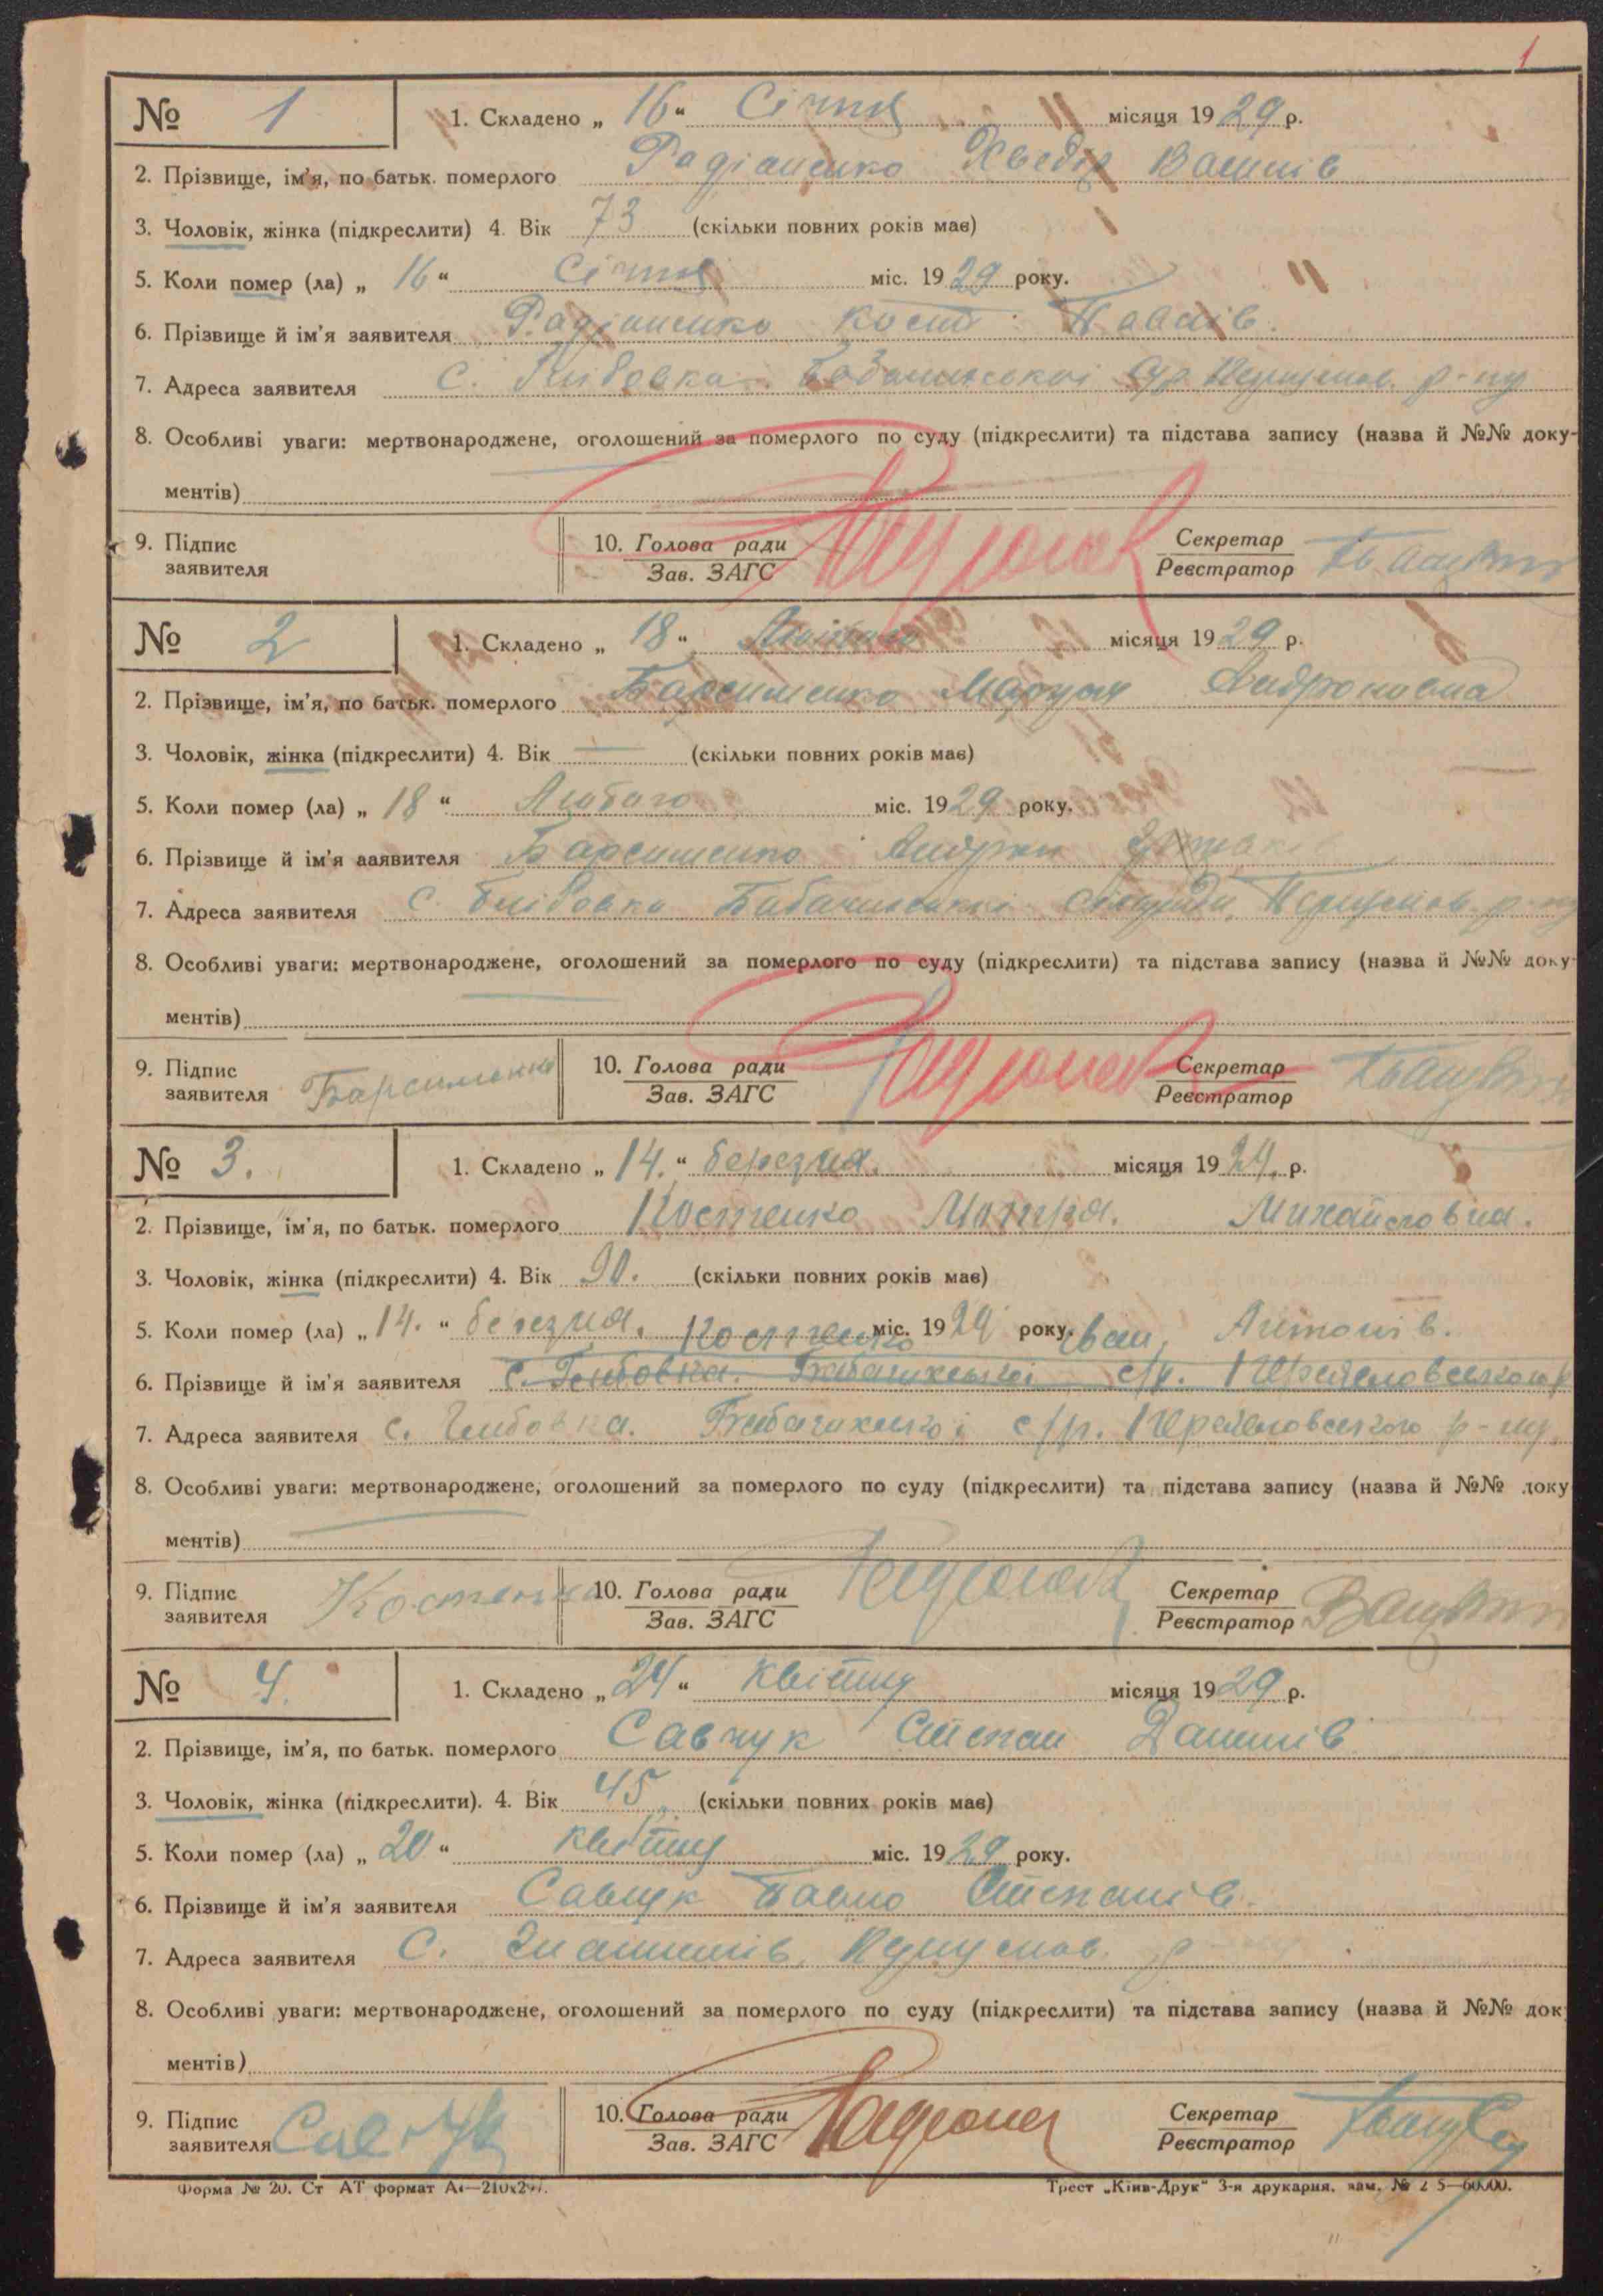 1
№ 1 1. Складено „ 16 “ Січня місяця 1929 р.
2. Прізвище, ім'я, по батьк. померлого Радіаненко Хведір
3. Чоловік, жінка (підкреслити) 4. Вік 73 (скільки повних років має)
5. Коли помер (ла) „ 16 “ Січня міс. 1929 року.
6. Прізвище й ім'я заявителя Радіаненко Кост Павлів.
7. Адреса заявителя С. р-ну
8. Особливі уваги: мертвонароджене, оголошений за померлого по суду (підкреслити) та підстава запису (назва й №№ доку-
ментів)
9. Підпис заявителя 10. Голова ради Зав. ЗАГС Секретар Реєстратор
№ 2 1. Складено „ 18 “ Лютого місяця 1929 р.
2. Прізвище, ім'я, по батьк. померлого Барсименко Маруся Андроновна
3. Чоловік, жінка (підкреслити) 4. Вік — (скільки повних років має)
5. Коли помер (ла) „ 18 “ Лютого міс. 1929 року.
6. Прізвище й ім'я заявителя Барсименко Андрон
7. Адреса заявителя С. р-ну
8. Особливі уваги: мертвонароджене, оголошений за померлого по суду (підкреслити) та підстава запису (назва й №№ доку-
ментів)
9. Підпис заявителя Барсименко 10. Голова ради Зав. ЗАГС Секретар Реєстратор
№ 3. 1. Складено „ 14. “ березня. місяця 1929. р.
2. Прізвище, ім'я, по батьк. померлого Костенко Мотря. Михайловна.
3. Чоловік, жінка (підкреслити) 4. Вік 90. (скільки повних років має)
5. Коли помер (ла) „ 14. “ березня. міс. 1929 року.
Костенко Іван, Антонів.
6. Прізвище й ім'я заявителя
7. Адреса заявителя с. с/р. р-ну.
8. Особливі уваги: мертвонароджене, оголошений за померлого по суду (підкреслити) та підстава запису (назва й №№ доку
ментів)
9. Підпис заявителя Костенко 10. Голова ради Зав. ЗАГС Секретар Реєстратор
№ 4. 1. Складено „ 24 “ Квітня місяця 1929 р.
2. Прізвище, ім'я, по батьк. померлого Савчук Степан Данилів
3. Чоловік, жінка (підкреслити). 4. Вік 45 (скільки повних років має)
5. Коли помер (ла) „ 20 “ квітня міс. 1929 року.
6. Прізвище й ім'я заявителя Савчук Павло Степанів.
7. Адреса заявителя С.
8. Особливі уваги: мертвонароджене, оголошений за померлого по суду (підкреслити) та підстава запису (назва й №№ док
ментів)
9. Підпис заявителя Савчук 10. Голова ради Зав. ЗАГС Секретар Реєстратор
Форма № 20. Ст АТ формат А4—210х297. Трест „Київ-Друк“ 3-я друкарня.